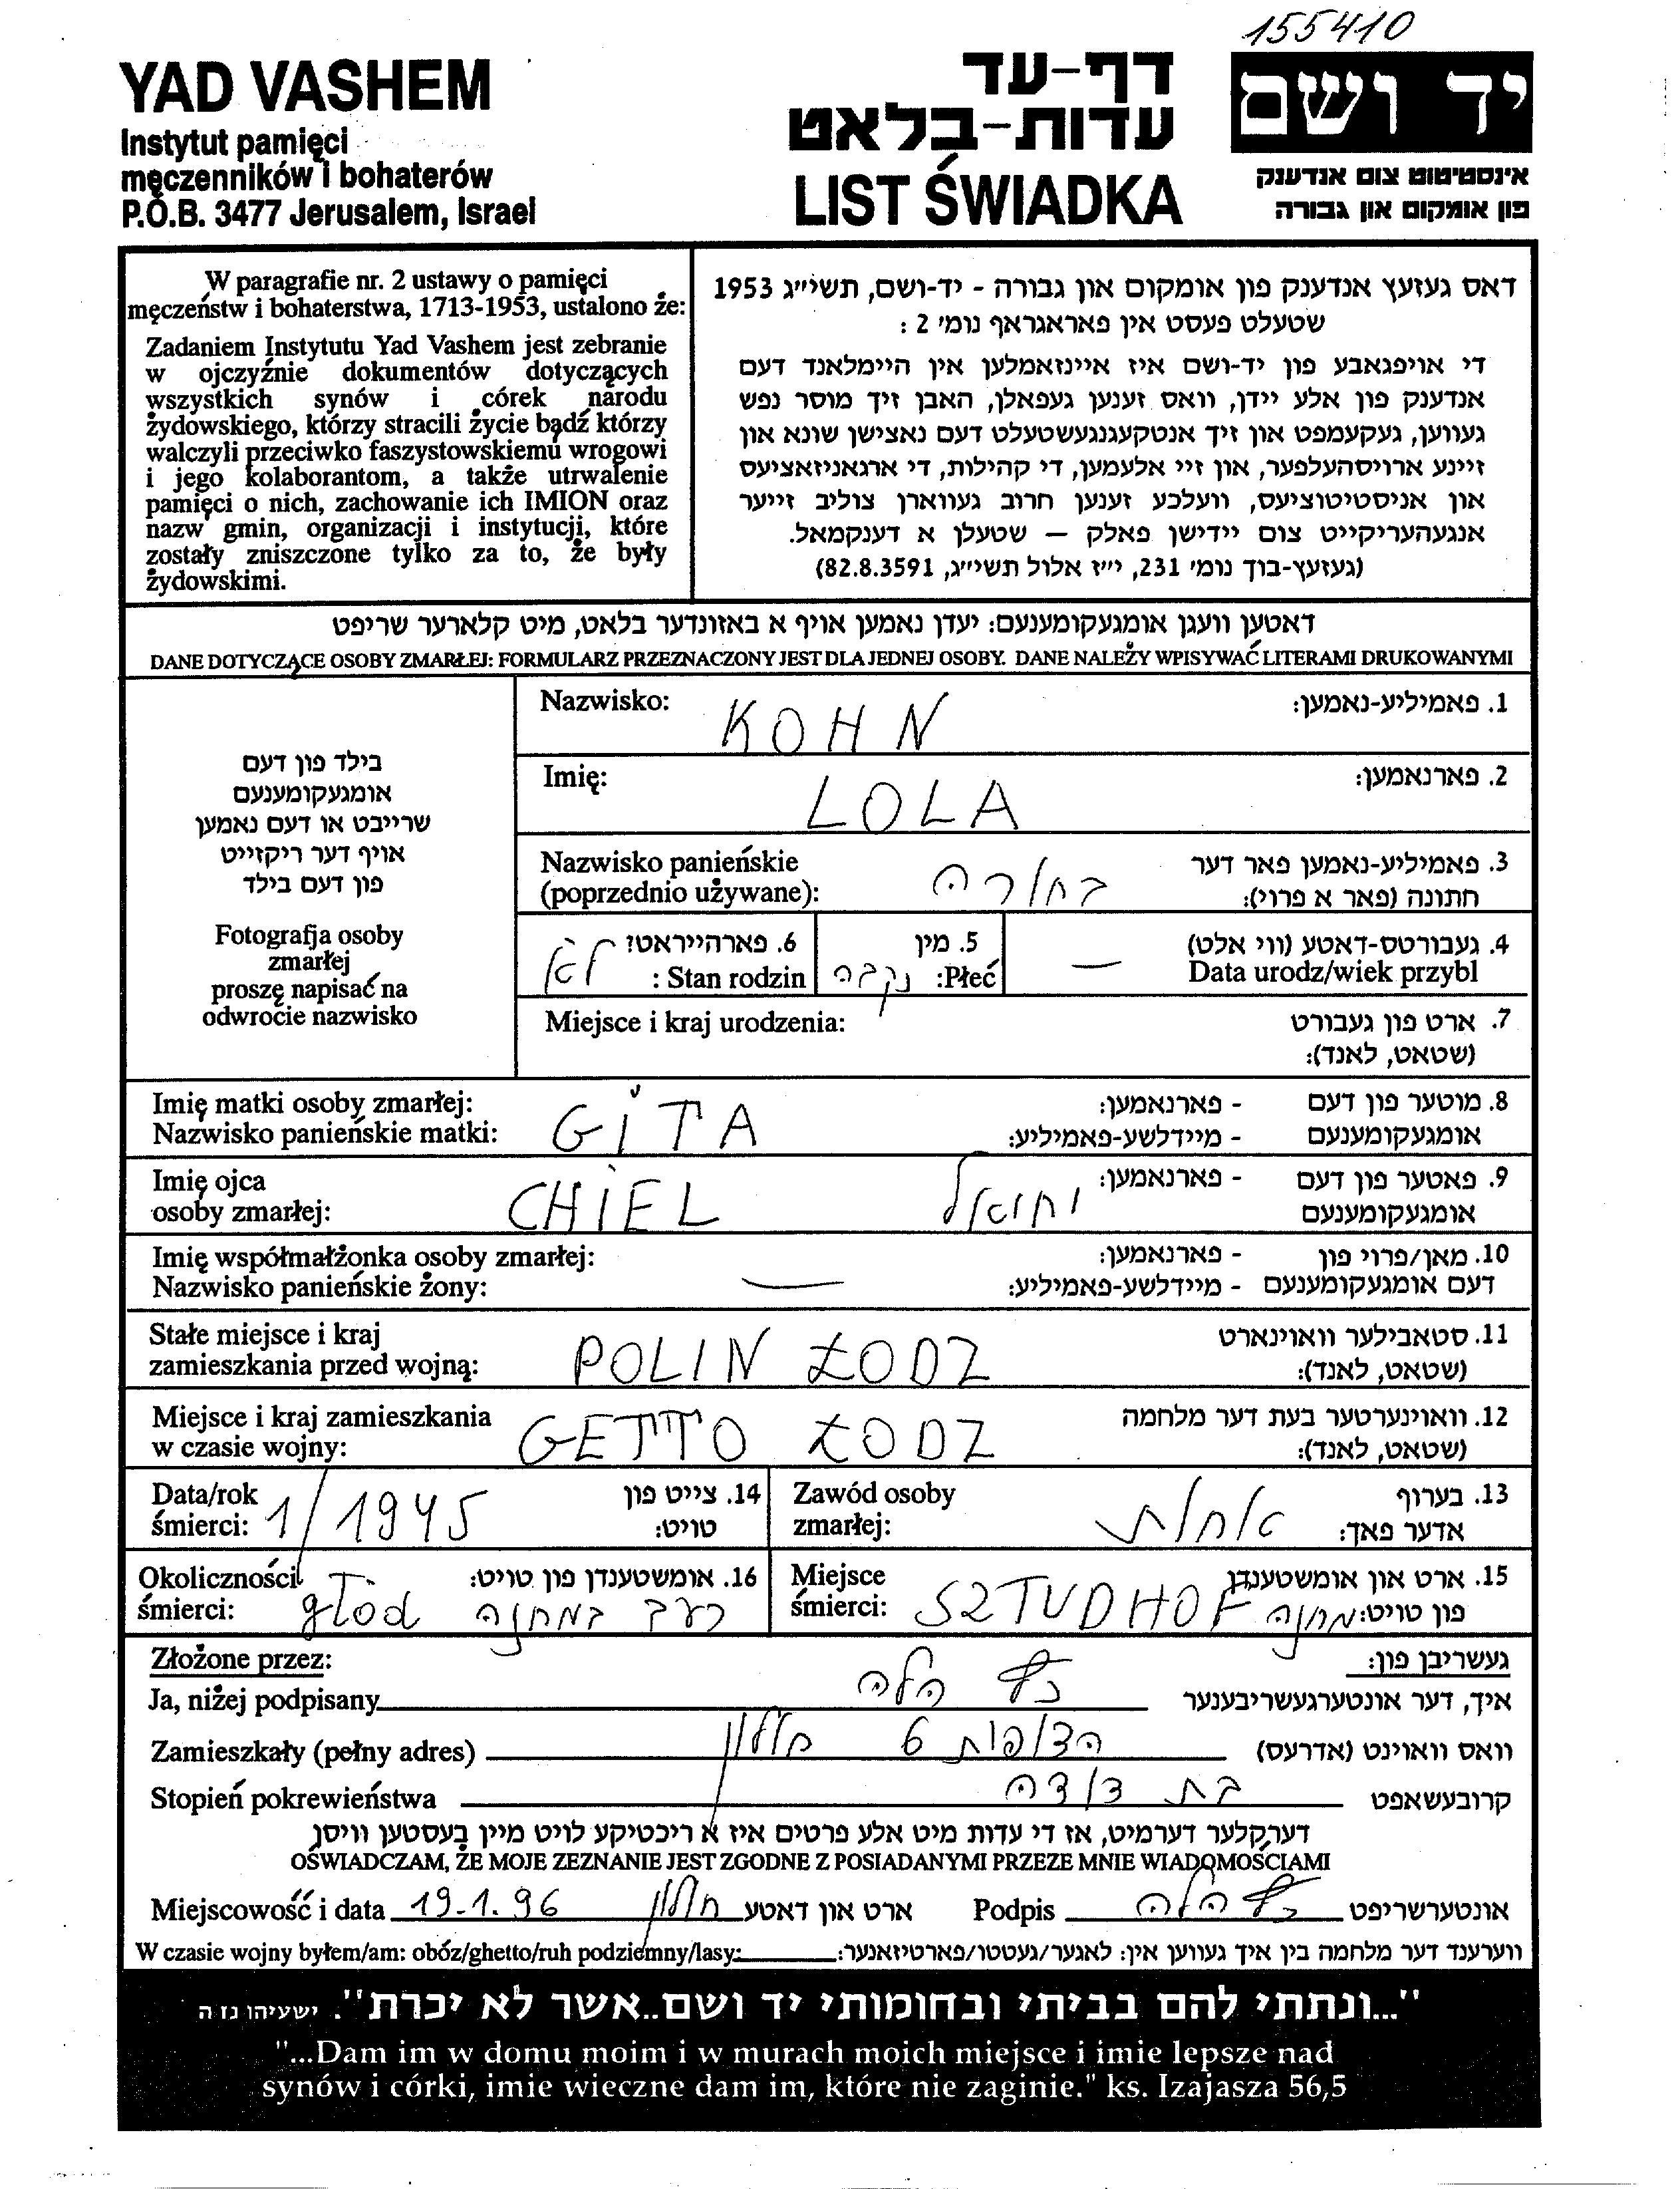 155410
YAD VASHEM
Instytut pamięci
męczenników i bohaterów
P.O.B. 3477 Jerusalem, Israel
דף-עד
עדות-בלאט
LIST ŚWIADKA
יד ושם
אינסטיטוט צום אנדענק
פון אומקום און גבורה
W paragrafie nr. 2 ustawy o pamięci
męczeństw i bohaterstwa, 1713-1953, ustalono że:
Zadaniem Instytutu Yad Vashem jest zebranie
w ojczyźnie dokumentów dotyczących
wszystkich synów i córek narodu
żydowskiego, którzy stracili życie bądź którzy
walczyli przeciwko faszystowskiemu wrogowi
i jego kolaborantom, a także utrwalenie
pamięci o nich, zachowanie ich IMION oraz
nazw gmin, organizacji i instytucji, które
zostały zniszczone tylko za to, że były
żydowskimi.
דאס געזעץ אנדענק פון אומקום און גבורה - יד-ושם, תשי״ג 1953
שטעלט פעסט אין פאראגראף נומ׳ 2 :
די אויפגאבע פון יד-ושם איז איינזאמלען אין היימלאנד דעם
אנדענק פון אלע יידן, וואס זענען געפאלן, האבן זיך מוסר נפש
געווען, געקעמפט און זיך אנטקעגנגעשטעלט דעם נאצישן שונא און
זיינע ארויסהעלפער, און זיי אלעמען, די קהילות, די ארגאניזאציעס
און אניסטיטוציעס, וועלכע זענען חרוב געווארן צוליב זייער
אנגעהעריקייט צום יידישן פאלק — שטעלן א דענקמאל.
(געזעץ-בוך נומ׳ 231, י״ז אלול תשי״ג, 82.8.3591)
דאטען וועגן אומגעקומענעם: יעדן נאמען אויף א באזונדער בלאט, מיט קלארער שריפט
DANE DOTYCZĄCE OSOBY ZMARŁEJ: FORMULARZ PRZEZNACZONY JEST DLA JEDNEJ OSOBY. DANE NALEŻY WPISYWAĆ LITERAMI DRUKOWANYMI
בילד פון דעם
אומגעקומענעם
שרייבט או דעם נאמען
אויף דער ריקזייט
פון דעם בילד
Fotografja osoby
zmarłej
proszę napisać na
odwrocie nazwisko
Nazwisko: KOHN 1. פאמיליע-נאמען:
Imię: LOLA 2. פארנאמען:
Nazwisko panieńskie 3. פאמיליע-נאמען פאר דער
(poprzednio używane): בחורה חתונה (פאר א פרוי):
6. פארהייראט? לא 5. מין 4. געבורטס-דאטע (ווי אלט)
Stan rodzin : Płeć: נקבה — Data urodz/wiek przybl
Miejsce i kraj urodzenia: 7. ארט פון געבורט
(שטאט, לאנד):
Imię matki osoby zmarłej: - פארנאמען: 8. מוטער פון דעם
Nazwisko panieńskie matki: GITA - מיידלשע-פאמיליע: אומגעקומענעם
Imię ojca - פארנאמען: 9. פאטער פון דעם
osoby zmarłej: CHIEL יחיאל אומגעקומענעם
Imię współmałżonka osoby zmarłej: - פארנאמען: 10. מאן/פרוי פון
Nazwisko panieńskie żony: — - מיידלשע-פאמיליע: דעם אומגעקומענעם
Stałe miejsce i kraj 11. סטאבילער וואוינארט
zamieszkania przed wojną: POLIN ŁODZ (שטאט, לאנד):
Miejsce i kraj zamieszkania 12. וואוינערטער בעת דער מלחמה
w czasie wojny: GETTO ŁODZ (שטאט, לאנד):
Data/rok 14. צייט פון
śmierci: 1/1945 טויט:
Zawód osoby 13. בערוף
zmarłej: אחות אדער פאך:
Okoliczności 16. אומשטענדן פון טויט:
śmierci: głod רעב במחנה
Miejsce 15. ארט און אומשטענדן
śmierci: SZTUDHOF מחנה פון טויט:
Złożone przez: געשריבן פון:
Ja, niżej podpisany כץ הלה איך, דער אונטערגעשריבענער
Zamieszkały (pełny adres) הצופית 6 חולון וואס וואוינט (אדרעס)
Stopień pokrewieństwa בת דודה קרובעשאפט
דערקלער דערמיט, אז די עדות מיט אלע פרטים איז א ריכטיקע לויט מיין בעסטען וויסן
OŚWIADCZAM, ŻE MOJE ZEZNANIE JEST ZGODNE Z POSIADANYMI PRZEZE MNIE WIADOMOŚCIAMI
Miejscowość i data 19.1.96 חולון ארט און דאטע Podpis כץ הלה אונטערשריפט
W czasie wojny byłem/am: obóz/ghetto/ruh podziemny/lasy: ווערענד דער מלחמה בין איך געווען אין: לאגער/געטטו/פארטיזאנער:
"...ונתתי להם בביתי ובחומותי יד ושם..אשר לא יכרת". ישעיהו נז ה
"...Dam im w domu moim i w murach moich miejsce i imie lepsze nad
synów i córki, imie wieczne dam im, które nie zaginie." ks. Izajasza 56,5